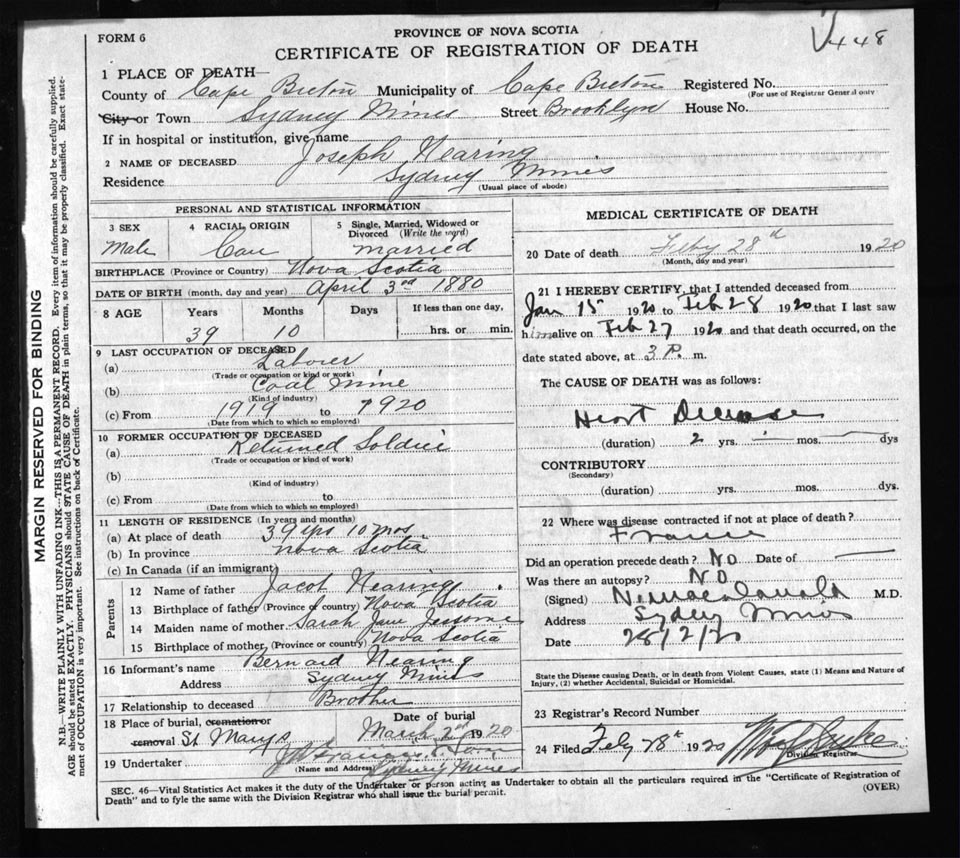 FORM 6
PROVINCE OF NOVA SCOTIA
448
CERTIFICATE OF REGISTRATION OF DEATH
1 PLACE OF DEATH—
County of Cape Breton Municipality of Cape Breton Registered No.
(For use of Registrar General only
City or Town Sydney Mines Street Brooklyn House No.
If in hospital or institution, give name
2 NAME OF DECEASED Joseph Nearing
Residence Sydney Mines
(Usual place of abode)
PERSONAL AND STATISTICAL INFORMATION
3 SEX 4 RACIAL ORIGIN 5 Single, Married, Widowed or
Divorced (Write the word)
Male Cau married
BIRTHPLACE (Province or Country) Nova Scotia
DATE OF BIRTH (month, day and year) April 3rd 1880
8 AGE Years Months Days If less than one day,
39 10 hrs. or min.
9 LAST OCCUPATION OF DECEASED
(a) Laborer
(Trade or occupation or kind of work)
(b) Coal Mine
(Kind of industry)
(c) From 1919 to 1920
(Date from which to which so employed)
10 FORMER OCCUPATION OF DECEASED
(a) Returned Soldier
(Trade or occupation or kind of work)
(b)
(Kind of industry)
(c) From to
(Date from which to which so employed)
11 LENGTH OF RESIDENCE (In years and months)
(a) At place of death 39 yrs 10 mos.
(b) In province Nova Scotia
(c) In Canada (if an immigrant)
Parents
12 Name of father Jacob Nearing
13 Birthplace of father (Province or country) Nova Scotia
14 Maiden name of mother Sarah Jane Jessome
15 Birthplace of mother (Province or country) Nova Scotia
16 Informant's name Bernard Nearing
Address Sydney Mines
17 Relationship to deceased Brother
18 Place of burial, cremation or Date of burial
removal St Marys March 2nd 1920
19 Undertaker
(Name and Address) Sydney Mines
MEDICAL CERTIFICATE OF DEATH
20 Date of death Feby 28th 1920
(Month, day and year)
21 I HEREBY CERTIFY, that I attended deceased from
Jan 15 1920 to Feb 28 1920 that I last saw
him alive on Feb 27 1920 and that death occurred, on the
date stated above, at 3 P. m.
The CAUSE OF DEATH was as follows:
Heart Decease
(duration) 2 yrs. mos. dys
CONTRIBUTORY
(Secondary)
(duration) yrs. mos. dys.
22 Where was disease contracted if not at place of death?
France
Did an operation precede death? NO Date of
Was there an autopsy? NO
(Signed) M.D.
Address Sydney Mines
Date 28/2/20
State the Disease causing Death, or in death from Violent Causes, state (1) Means and Nature of
Injury, (2) whether Accidental, Suicidal or Homicidal.
23 Registrar's Record Number
24 Filed Feby 28th 1920
Division Registrar
SEC. 46—Vital Statistics Act makes it the duty of the Undertaker or person acting as Undertaker to obtain all the particulars required in the "Certificate of Registration of
Death" and to fyle the same with the Division Registrar who shall issue the burial permit.
(OVER)
MARGIN RESERVED FOR BINDING
N.B.—WRITE PLAINLY WITH UNFADING INK—THIS IS A PERMANENT RECORD. Every item of information should be carefully supplied.
AGE should be stated EXACTLY. PHYSICIANS should STATE CAUSE OF DEATH in plain terms, so that it may be properly classified. Exact state-
ment of OCCUPATION is very important. See instructions on back of Certificate.